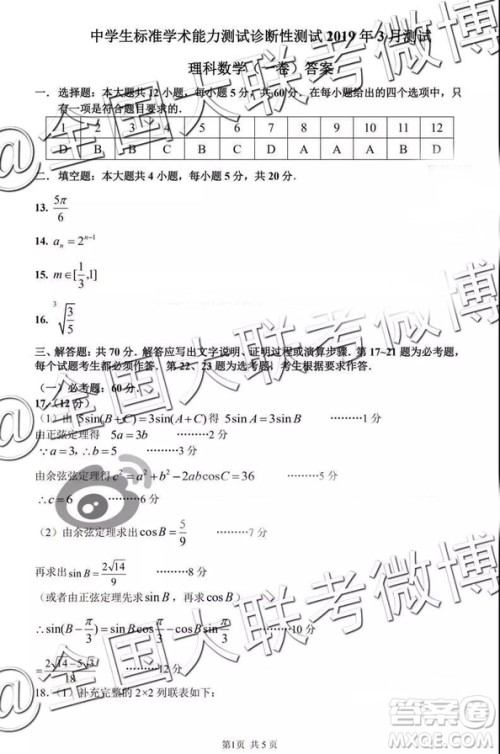 中学生标准学术能力测试诊断性测试 2019 年 3 月测试
理科数学（一卷）答案
一. 选择题：本大题共 12 小题，每小题 5 分，共 60 分．在每小题给出的四个选项中，只
有一项是符合题目要求的．
1 2 3 4 5 6 7 8 9 10 11 12
D B B B C D D A A A B D
二. 填空题：本大题共 4 小题，每小题 5 分，共 20 分．
13. 5π/6
14. aₙ = 2ⁿ⁻¹
15. m∈[1/3,1]
16. ³√(3/5)
三、解答题：共 70 分．解答应写出文字说明、证明过程或演算步骤．第 17~21 题为必考题，
每个试题考生都必须作答．第 22、23 题为选考题，考生根据要求作答．
（一）必考题：60 分．
17．（12 分）
（1）由 5sin(B+C)=3sin(A+C) 得 5sin A=3sin B ………1 分
由正弦定理 5a=3b ………2 分
∵a=3，∴b=5 ………3 分
由余弦定理得 c²=a²+b²−2abcosC=36 ………5 分
∴c=6 ………6 分
（2）由余弦定理求出 cos B=5/9 ………7 分
再求出 sin B=2√14/9 ………8 分
（或者由正弦定理先求出 sin B，再求 cos B）
∴sin(B−π/3)=sin B cos π/3 − cos B sin π/3
=(2√14−5√3)/18
18．（1）补充完整的 2×2 列联表如下：
第1页 共 5 页
@全国大联考微博
@全国大联考微博
@全国大联考微博
答案圈
MXQE.COM